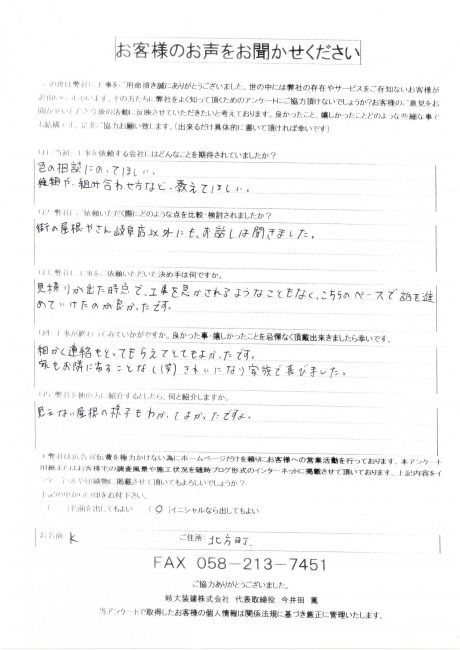 お客様のお声をお聞かせください
この度は弊社に工事をご用命頂き誠にありがとうございました。世の中には弊社の存在やサービスをご存知ないお客様が
沢山いらっしゃいます。その方たちに弊社をよく知って頂くためのアンケートにご協力頂けないでしょうか?お客様のご意見をお
聞かせいただき今後の活動に反映させていただきたいと考えております。良かったこと、嬉しかったことどのような些細な事で
も結構です。是非ご協力お願い致します。(出来るだけ具体的に書いて頂ければ幸いです)
Q1:当初、工事を依頼する会社にはどんなことを期待されていましたか?
色の相談にのってほしい。
種類や、組み合わせ方など、教えてほしい。
Q2:弊社にご依頼いただく際にどのような点を比較・検討されましたか?
街の屋根やさん岐阜店以外にも、お話しは聞きました。
Q3:弊社に工事をご依頼いただいた決め手は何ですか。
見積りが出た時点で、工事を急かされるようなこともなく、こちらのペースで話を進
めていけたのが良かったです。
Q4:工事が終わってみていかがですか。良かった事・嬉しかったことを忌憚なく頂戴出来きましたら幸いです。
細かく連絡もとってもらえてとてもよかったです。
家もお隣にあることなし(笑) きれいになり家族で喜びました。
Q5:弊社を他の方に紹介するとしたら、何と紹介しますか。
見えない屋根の様子もわかってよかったですよ。
*弊社は広告宣伝費を極力かけない為にホームページだけを頼りにお客様への営業活動を行っております。本アンケート
用紙またはお客様宅の調査風景や施工状況を随時ブログ形式のインターネットに掲載させて頂いております。上記内容をイ
ンターネットや印刷物に掲載させて頂いてもよろしいでしょうか?
下記の中から○印をお付下さい。
( )名前を出してもよい (○)イニシャルなら出してもよい
お名前: K ご住所: 北方町.
FAX 058-213-7451
ご協力ありがとうございました。
岐大装建株式会社 代表取締役 今井田 篤
当アンケートで取得したお客様の個人情報は関係法規に基づき厳正に管理いたします。